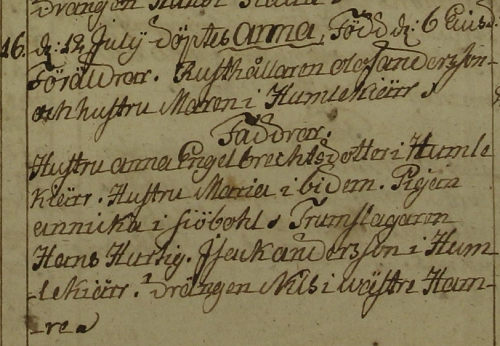 Drängen
16. d: 12 July döptes anna, Född d: 6 Ejusd.
Föräldrar. Rusthållaren olof andersson
och hustru Maren i Humlekiärr.
Faddrar.
Hustru anna Engelbrechtsdotter i Humle
kiärr. Hustru Maria i bidem. Pigan
annicka i siöbohl. Trumslagaren
Hans Hurtig. Isack andersson i Hum-
-lekiärr. Drängen Nils i wästre Ham-
-re.